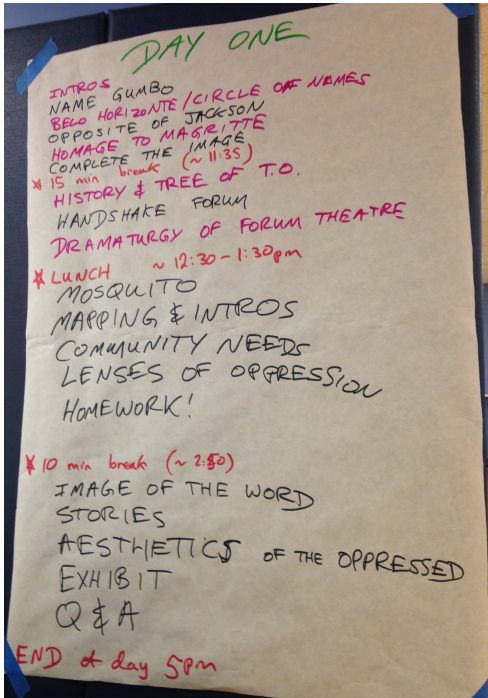 DAY ONE
INTROS
NAME GUMBO
BELO HORIZONTE/CIRCLE OF NAMES
OPPOSITE OF JACKSON
HOMAGE TO MAGRITTE
COMPLETE THE IMAGE
* 15 min break (~ 11:35)
HISTORY & TREE OF T.O.
HANDSHAKE FORUM
DRAMATURGY OF FORUM THEATRE
* LUNCH ~ 12:30-1:30pm
MOSQUITO
MAPPING & INTROS
COMMUNITY NEEDS
LENSES OF OPPRESSION
HOMEWORK!
* 10 min break (~ 2:50)
IMAGE OF THE WORD
STORIES
AESTHETICS OF THE OPPRESSED
EXHIBIT
Q & A
END of day 5pm